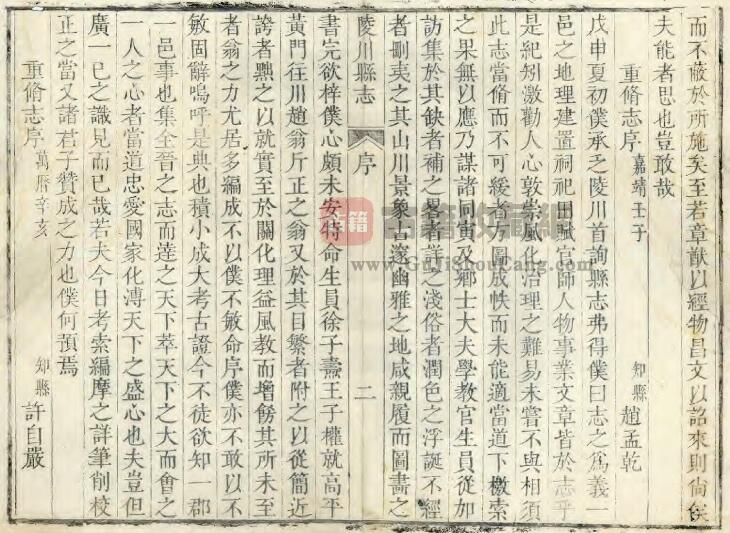 而不蔽於所施矣至若章猷以經物昌文以詒來則尙俟
夫能者思也豈敢哉
重脩志序 嘉靖壬子 知縣 趙孟乾
戊申夏初僕承乏陵川首詢縣志弗得僕曰志之爲義一
邑之地理建置祠祀田賦官師人物事業文章皆於志乎
是紀矧激勸人心敦崇風化治理之難易未嘗不與相須
此志當脩而不可緩者方圖成帙而未能適當道下檄索
之果無以應乃謀諸同寅及鄉士大夫學敎官生員從加
訪集於其缺者補之畧者詳之淺俗者潤色之浮誕不經
者刪夷之其山川景象古邃幽雅之地咸親履而圖畫之
陵川縣志 序 二
書完欲梓僕心頗未安特命生員徐子壽王子權就高平
黃門往川趙翁斤正之翁又於其目繁者附之以從簡近
誇者黜之以就實至於關化理益風敎而增餙其所未至
者翁之力尤居多編成不以僕不敏命序僕亦不敢以不
敏固辭嗚呼是典也積小成大考古證今不徒欲知一郡
一邑事也集全晉之志而達之天下萃天下之大而會之
一人之心者當道忠愛國家化溥天下之盛心也夫豈但
廣一已之識見而已哉若夫今日考索編摩之詳筆削校
正之當又諸君子贊成之力也僕何預焉
重脩志序 萬曆辛亥 知縣 許自嚴
古籍收藏網
www.GuJiShouCang.com